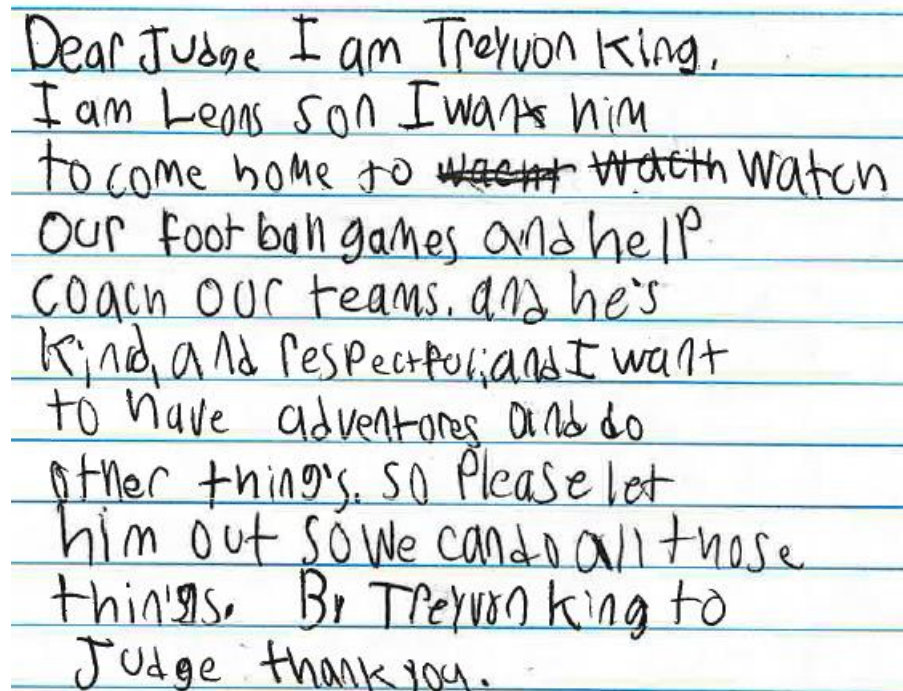 Dear Judge I am Treyvon King.
I am Leons son I want him
to come home to Watch
our foot ball games and help
coach our teams. and he's
kind, and respectful, and I want
to have adventores and do
other thing's. so Please let
him out so we can do all those
thin'gs. By Treyvon king to
Judge thank you.